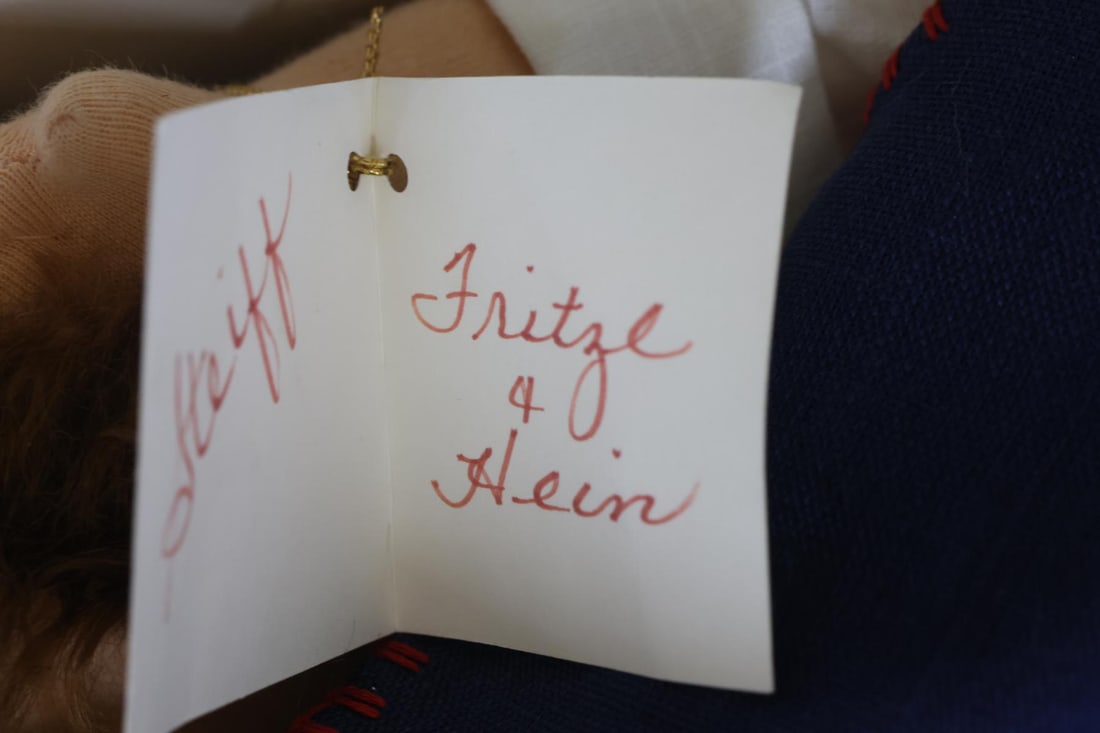 Steiff
Fritze
&
Hein